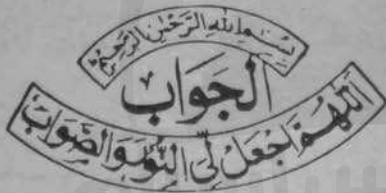 بِسْمِ اللهِ الرَّحْمٰنِ الرَّحِيْمِ
اَلْجَوَاب
اَللّٰهُمَّ اجْعَلْ لِّيَ النُّوْرَ وَالصَّوَابَ